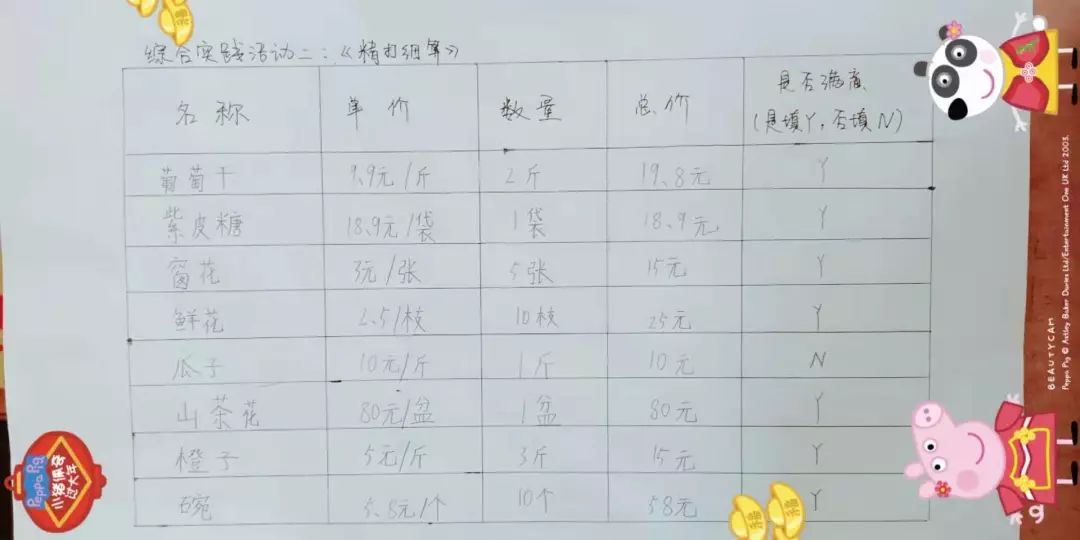 综合实践活动二：《精打细算》
名称 单价 数量 总价 是否满意
(是填Y，否填N)
葡萄干 9.9元/斤 2斤 19.8元 Y
紫皮糖 18.9元/袋 1袋 18.9元 Y
窗花 3元/张 5张 15元 Y
鲜花 2.5/枝 10枝 25元 Y
瓜子 10元/斤 1斤 10元 N
山茶花 80元/盆 1盆 80元 Y
橙子 5元/斤 3斤 15元 Y
碗 5.8元/个 10个 58元 Y
Peppa Pig
小猪佩奇
过大年
BEAUTYCAM
Peppa Pig © Astley Baker Davies Ltd/Entertainment One UK Ltd 2003.